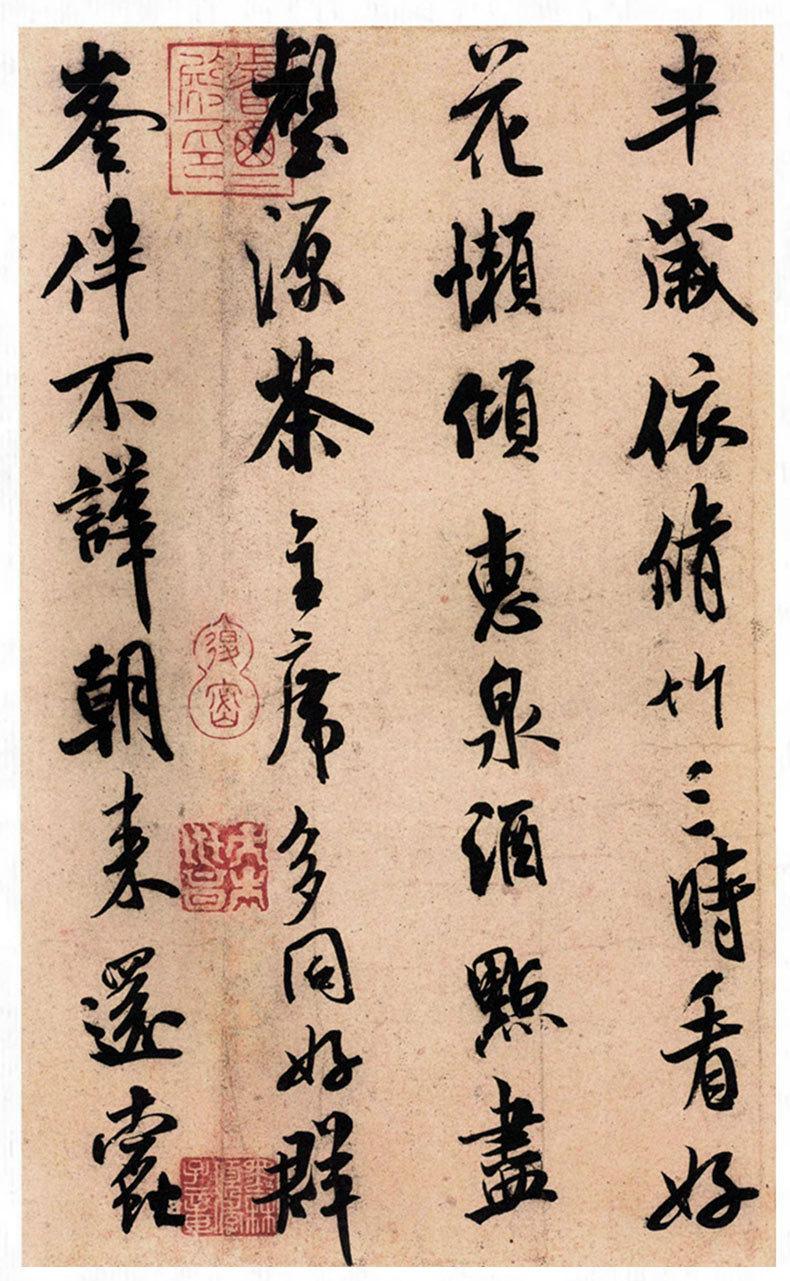 半歲依脩竹三時看好
花懶傾惠泉酒點盡
壑源茶主席多同好群
峯伴不譁朝来還蠹